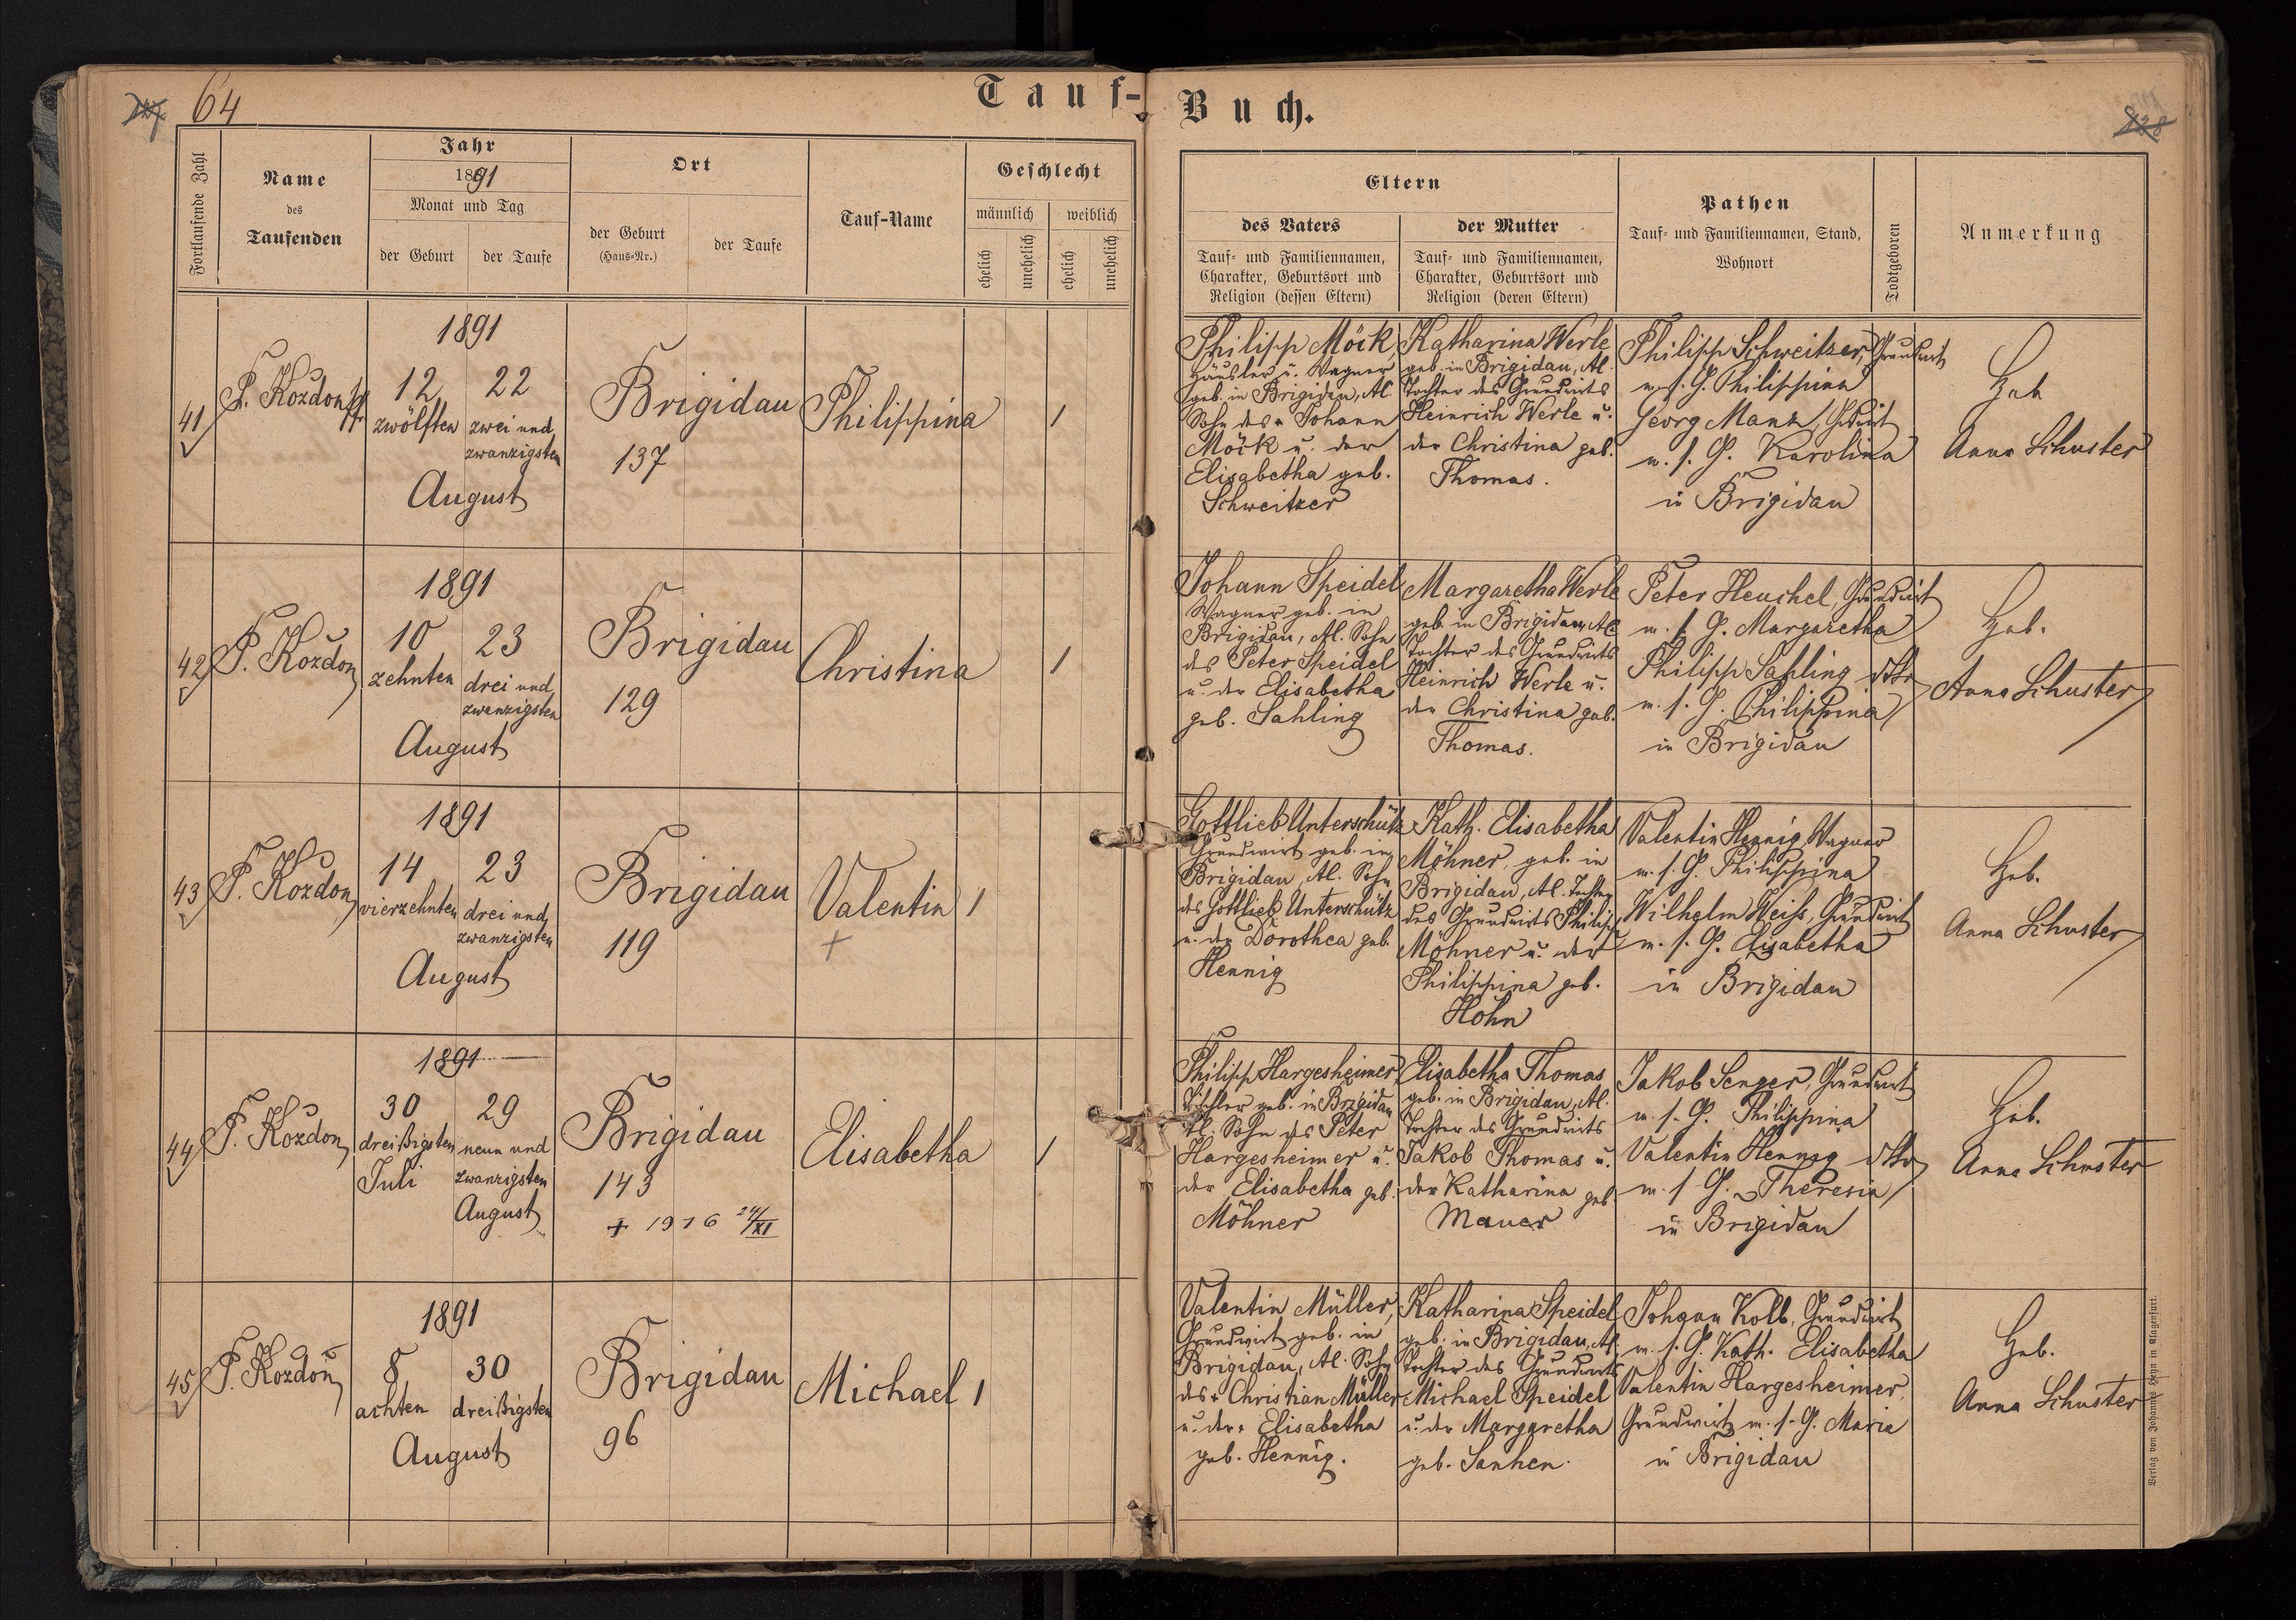 64
Tauf-Buch.
Fortlaufende Zahl
Name
des
Taufenden
Jahr
1891
Monat und Tag
der Geburt
der Taufe
Ort
der Geburt
(Haus-Nr.)
der Taufe
Tauf-Name
Geschlecht
männlich
weiblich
ehelich
unehelich
ehelich
unehelich
Eltern
des Vaters
Tauf- und Familiennamen,
Charakter, Geburtsort und
Religion (dessen Eltern)
der Mutter
Tauf- und Familiennamen,
Charakter, Geburtsort und
Religion (deren Eltern)
Pathen
Tauf- und Familiennamen, Stand,
Wohnort
Todtgeboren
Anmerkung
41
P. Kozdon
1891
12
zwölften
22
zwei und
zwanzigsten
August
Brigidau
137
Philippina
1
Philipp Möck,
Häusler u. Wagner
geb. in Brigidau, Al.
Sohn des + Johann
Möck u. der
Elisabetha geb.
Schweitzer
Katharina Werle
geb. in Brigidau, Al.
Tochter des Grundwirts
Heinrich Werle u.
der Christina geb.
Thomas.
Philipp Schweitzer, Grundwirt
m. s. G. Philippina
Georg Manz, Gdwirt
m. s. G. Karolina
in Brigidau
Heb.
Anna Schuster
42
P. Kozdon
1891
10
zehnten
23
drei und
zwanzigsten
August
Brigidau
129
Christina
1
Johann Speidel
Wagner geb. in
Brigidau, Al. Sohn
des Peter Speidel
u. der Elisabetha
geb. Sahling
Margaretha Werle
geb. in Brigidau, Al.
Tochter des Grundwirts
Heinrich Werle u.
der Christina geb.
Thomas.
Peter Heuchel, Grundwirt
m. s. G. Margaretha
Philipp Sahling dtto
m. s. G. Philippina
in Brigidau
Heb.
Anna Schuster
43
P. Kozdon
1891
14
vierzehnten
23
drei und
zwanzigsten
August
Brigidau
119
Valentin
+
1
Gottlieb Unterschütz
Grundwirt geb. in
Brigidau, Al. Sohn
des Gottlieb Unterschütz
u. der Dorothea geb.
Hennig
Kath. Elisabetha
Möhner, geb. in
Brigidau, Al. Tochter
des Grundwirts Philipp
Möhner u. der
Philippina geb.
Höhn
Valentin Hennig, Wagner
m. s. G. Philippina
Wilhelm Weiß, Grundwirt
m. s. G. Elisabetha
in Brigidau
Heb.
Anna Schuster
44
P. Kozdon
1891
30
dreißigsten
Juli
29
neun und
zwanzigsten
August
Brigidau
143
+ 1916 24/XI
Elisabetha
1
Philipp Hargesheimer,
Tischler geb. in Brigidau
Al. Sohn des Peter
Hargesheimer u.
der Elisabetha geb.
Möhner
Elisabetha Thomas
geb. in Brigidau, Al.
Tochter des Grundwirts
Jakob Thomas u.
der Katharina geb.
Mauer
Jakob Senger, Grundwirt
m. s. G. Philippina
Valentin Hennig dtto
m. s. G. Theresia
in Brigidau
Heb.
Anna Schuster
45
P. Kozdon
1891
8
achten
30
dreißigsten
August
Brigidau
96
Michael
1
Valentin Müller,
Grundwirt geb. in
Brigidau, Al. Sohn
des + Christian Müller
u. der + Elisabetha
geb. Hennig.
Katharina Speidel
geb. in Brigidau, Al.
Tochter des Grundwirts
Michael Speidel
u. der Margaretha
geb. Sanhen.
Johann Kolb, Grundwirt
m. s. G. Kath. Elisabetha
Valentin Hargesheimer,
Grundwirt m. s. G. Maria
in Brigidau
Heb.
Anna Schuster
Verlag von Johannes Heyn in Klagenfurt.